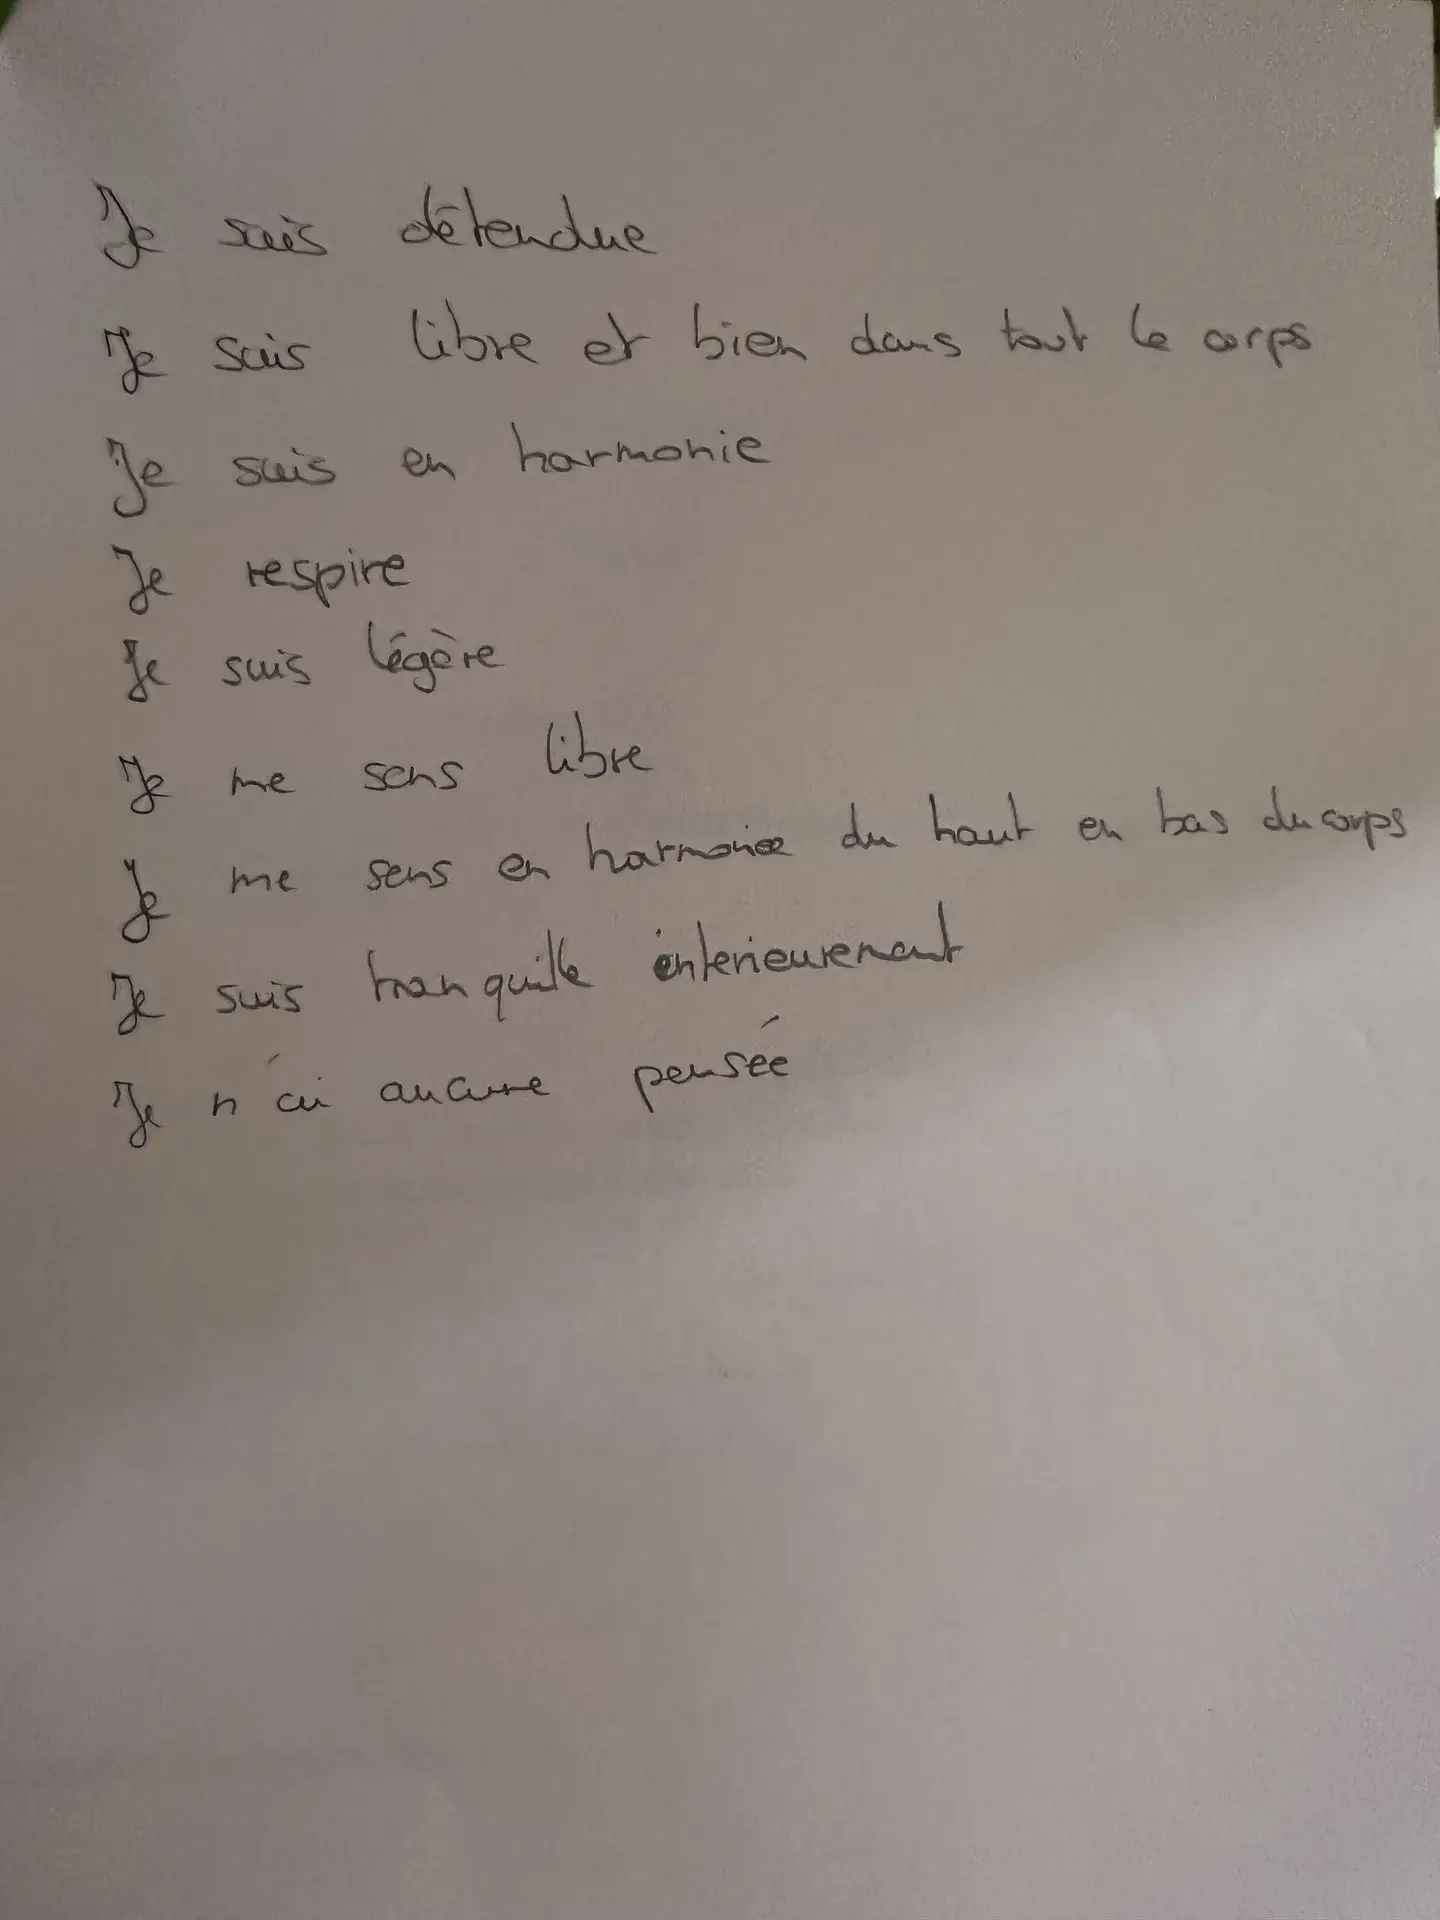 Je suis détendue
Je suis libre et bien dans tout le corps
Je suis en harmonie
Je respire
Je suis légère
Je me sens libre
Je me sens en harmonie du haut en bas du corps
Je suis tranquille interieurement
Je n'ai aucune pensée